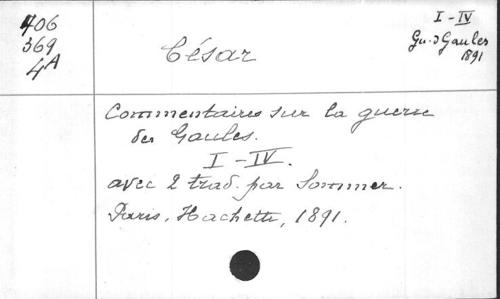 406
369
4A
César
I - IV
Gu. d Gaules
1891
Commentaires sur la guerre
des Gaules.
I - IV.
avec 2 trad. par Sommer.
Paris, Hachette, 1891.